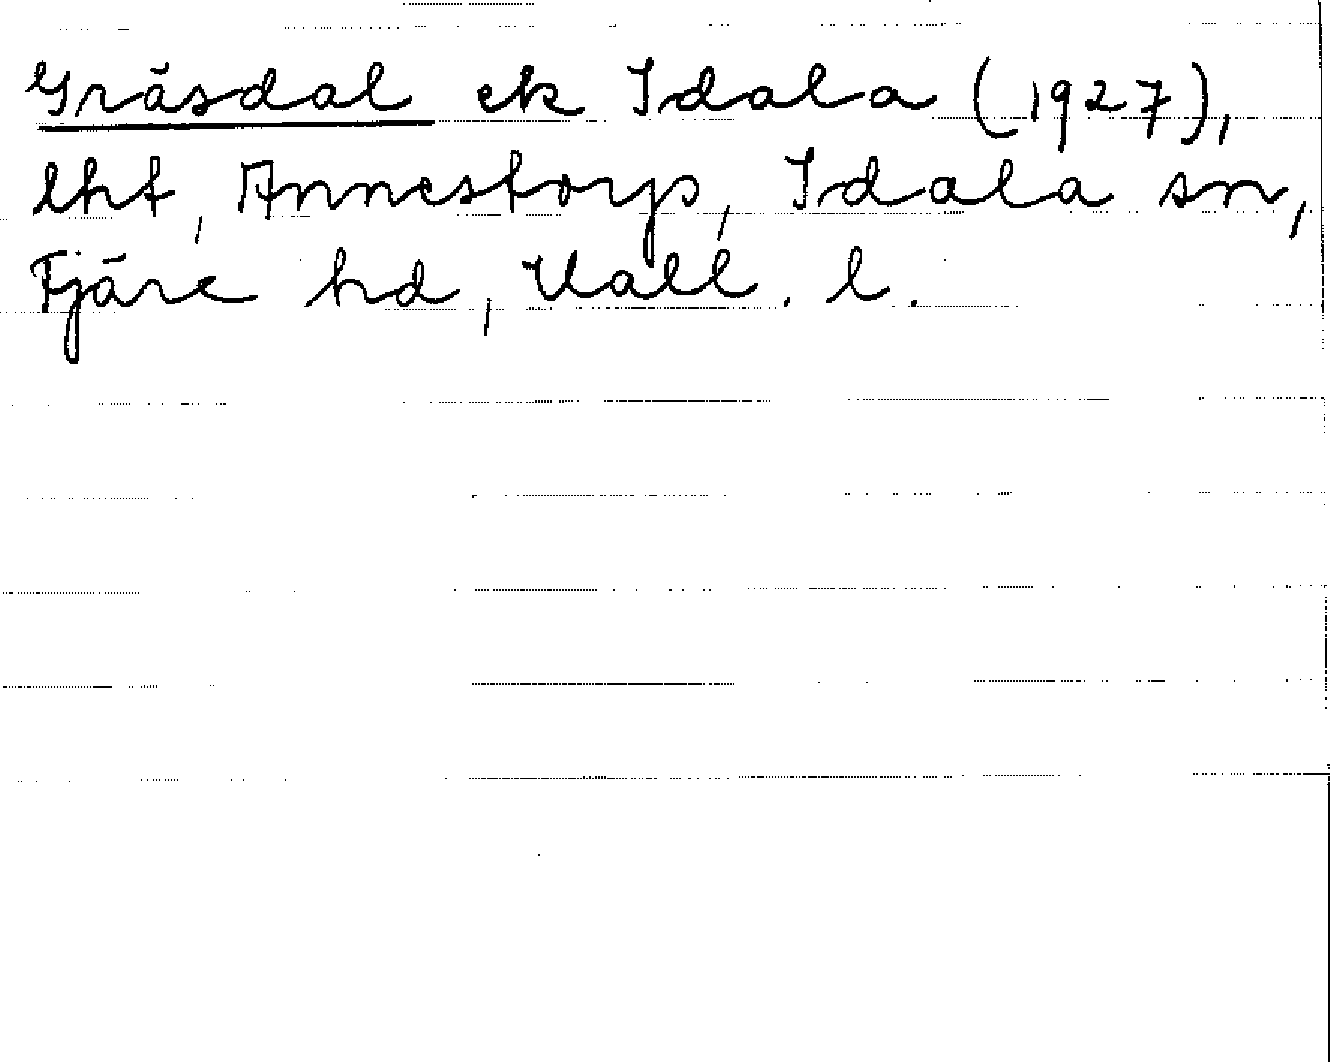 Gräsdal ek Idala (1927),
lht, Annestorp, Idala sn,
Fjäre hd, Hall. l.